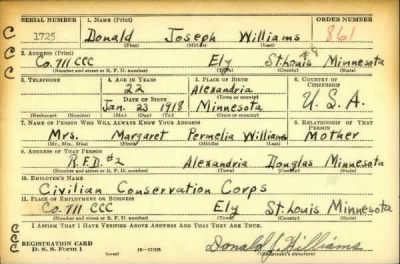 SERIAL NUMBER 1. NAME (Print) ORDER NUMBER
1725 Donald Joseph Williams 861
(First) (Middle) (Last)
2. ADDRESS (Print)
Co. 711 CCC Ely St. Louis Minnesota
(Number and street or R. F. D. number) (Town) (County) (State)
3. TELEPHONE 4. AGE IN YEARS 5. PLACE OF BIRTH 6. COUNTRY OF CITIZENSHIP
22 Alexandria
(Town or county)
DATE OF BIRTH
Jan. 23 1918 Minnesota U.S.A.
(Exchange) (Number) (Mo.) (Day) (Yr.) (State or country)
7. NAME OF PERSON WHO WILL ALWAYS KNOW YOUR ADDRESS 8. RELATIONSHIP OF THAT PERSON
Mrs. Margaret Permelia Williams Mother
(Mr., Mrs., Miss) (First) (Middle) (Last)
9. ADDRESS OF THAT PERSON
R.F.D. #2 Alexandria Douglas Minnesota
(Number and street or R. F. D. number) (Town) (County) (State)
10. EMPLOYER'S NAME
Civilian Conservation Corps
11. PLACE OF EMPLOYMENT OR BUSINESS
Co. 711 CCC Ely St. Louis Minnesota
(Number and street or R. F. D. number) (Town) (County) (State)
I AFFIRM THAT I HAVE VERIFIED ABOVE ANSWERS AND THAT THEY ARE TRUE.
REGISTRATION CARD
D. S. S. Form 1 16—17105 Donald J. Williams
(Registrant's signature)